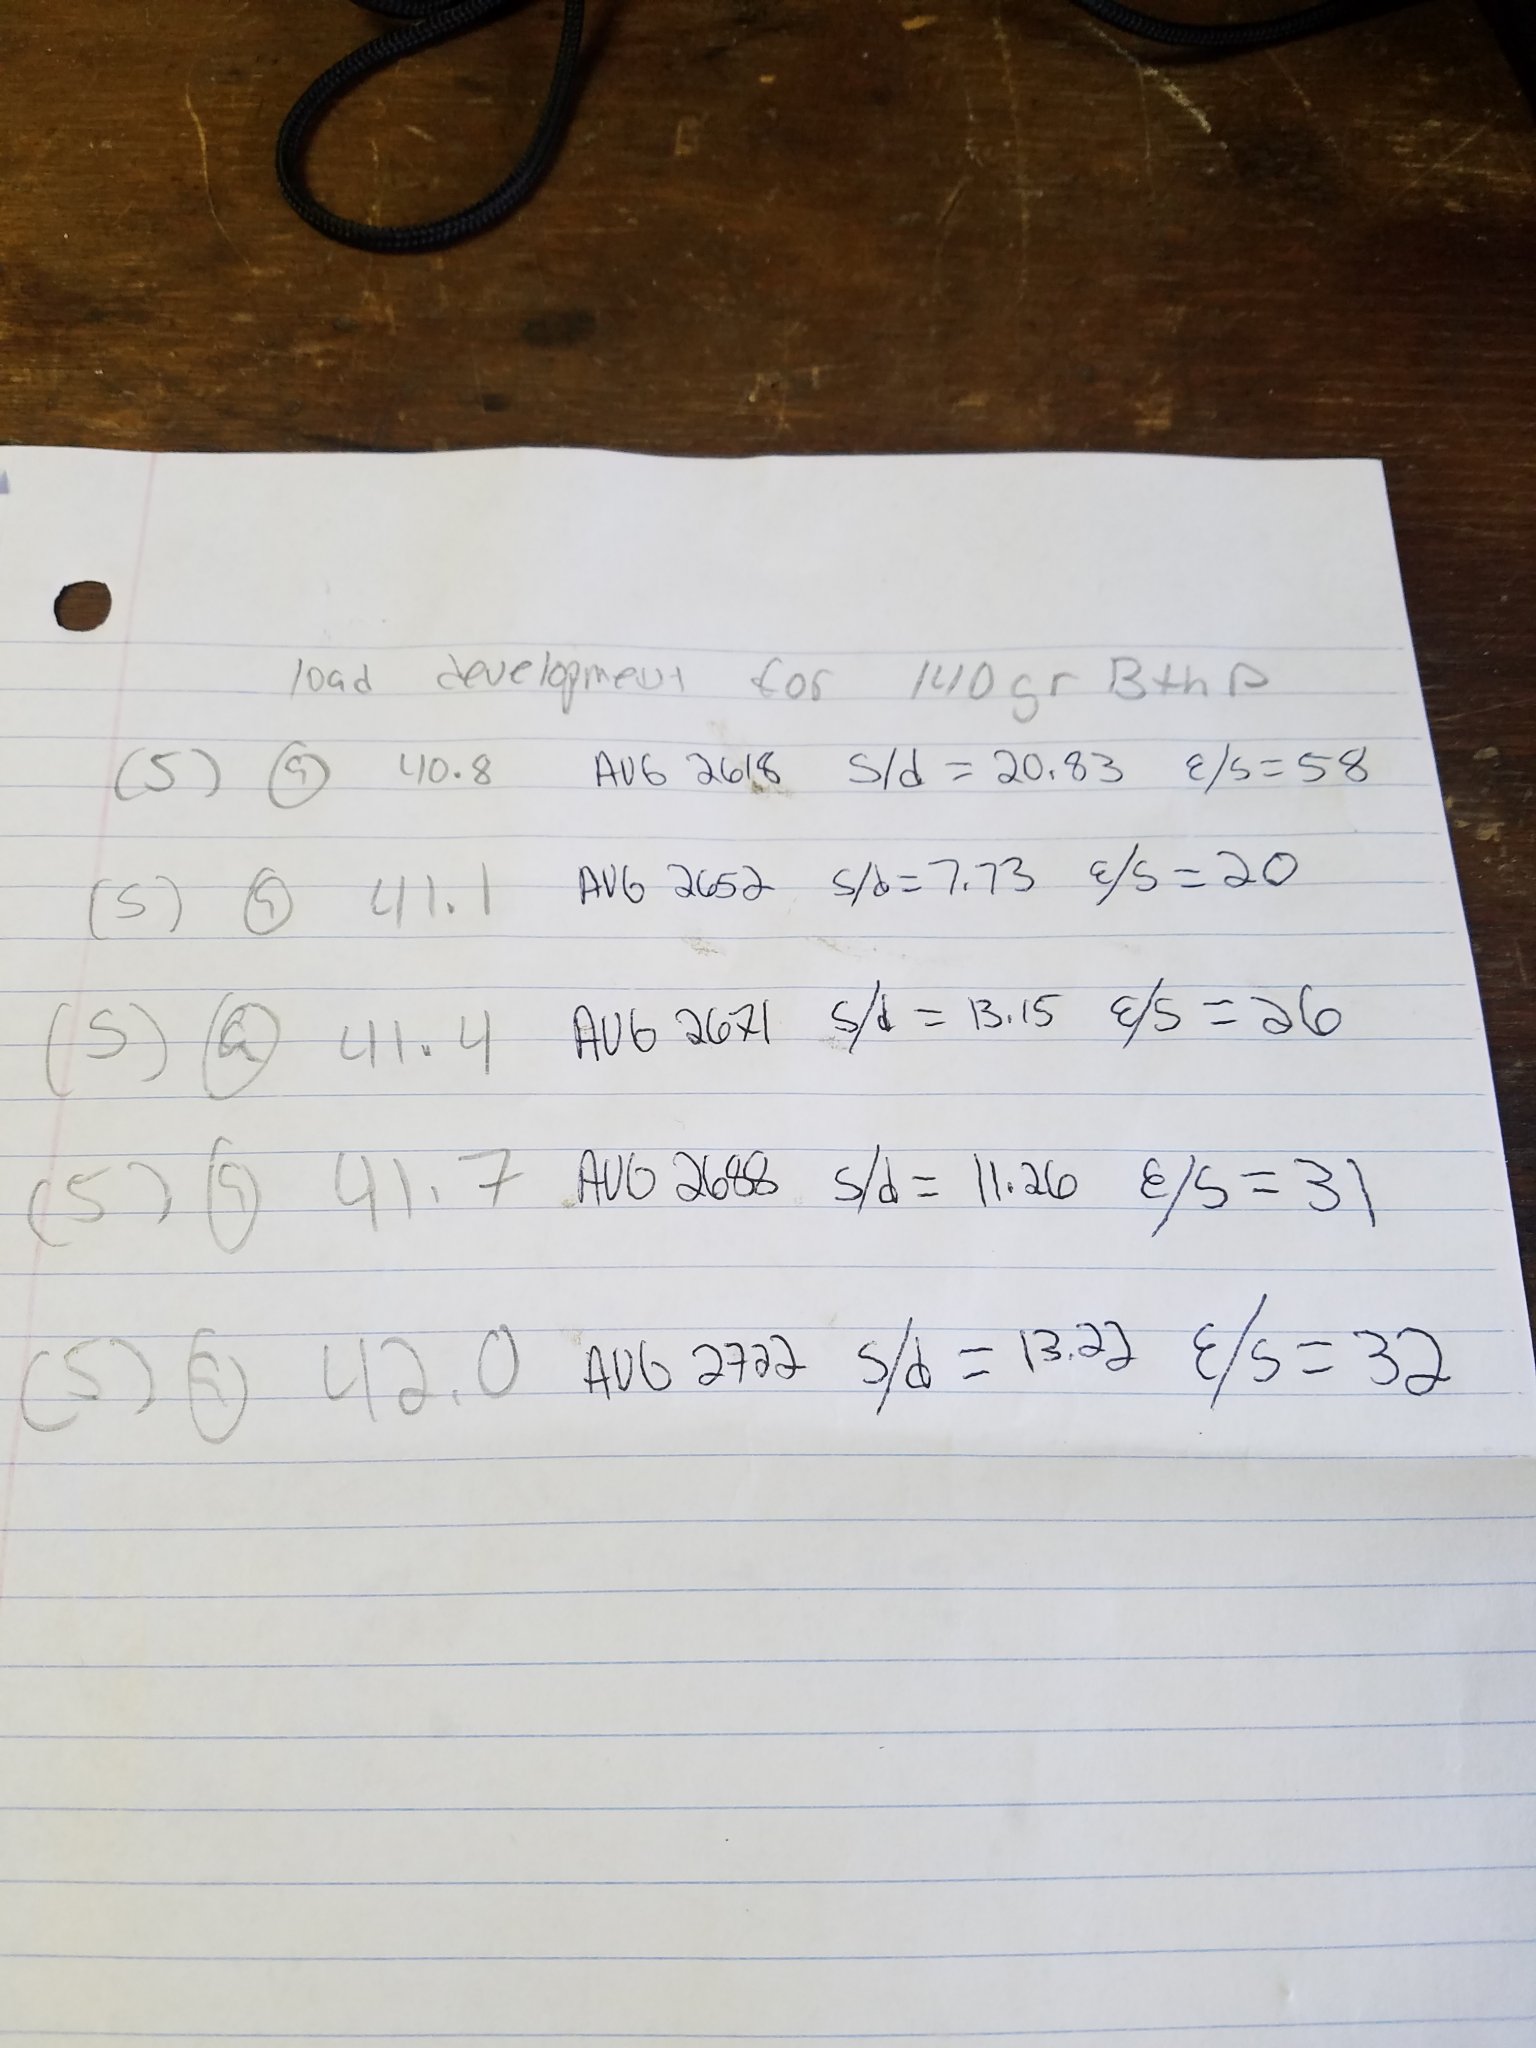 load development for 140gr BthP
(5) @ 40.8 AVG 2618 S/d = 20.83 E/S = 58
(5) @ 41.1 AVG 2652 S/d = 7.73 E/S = 20
(5) @ 41.4 AVG 2671 S/d = 13.15 E/S = 26
(5) @ 41.7 AVG 2688 S/d = 11.26 E/S = 31
(5) @ 42.0 AVG 2722 S/d = 13.22 E/S = 32